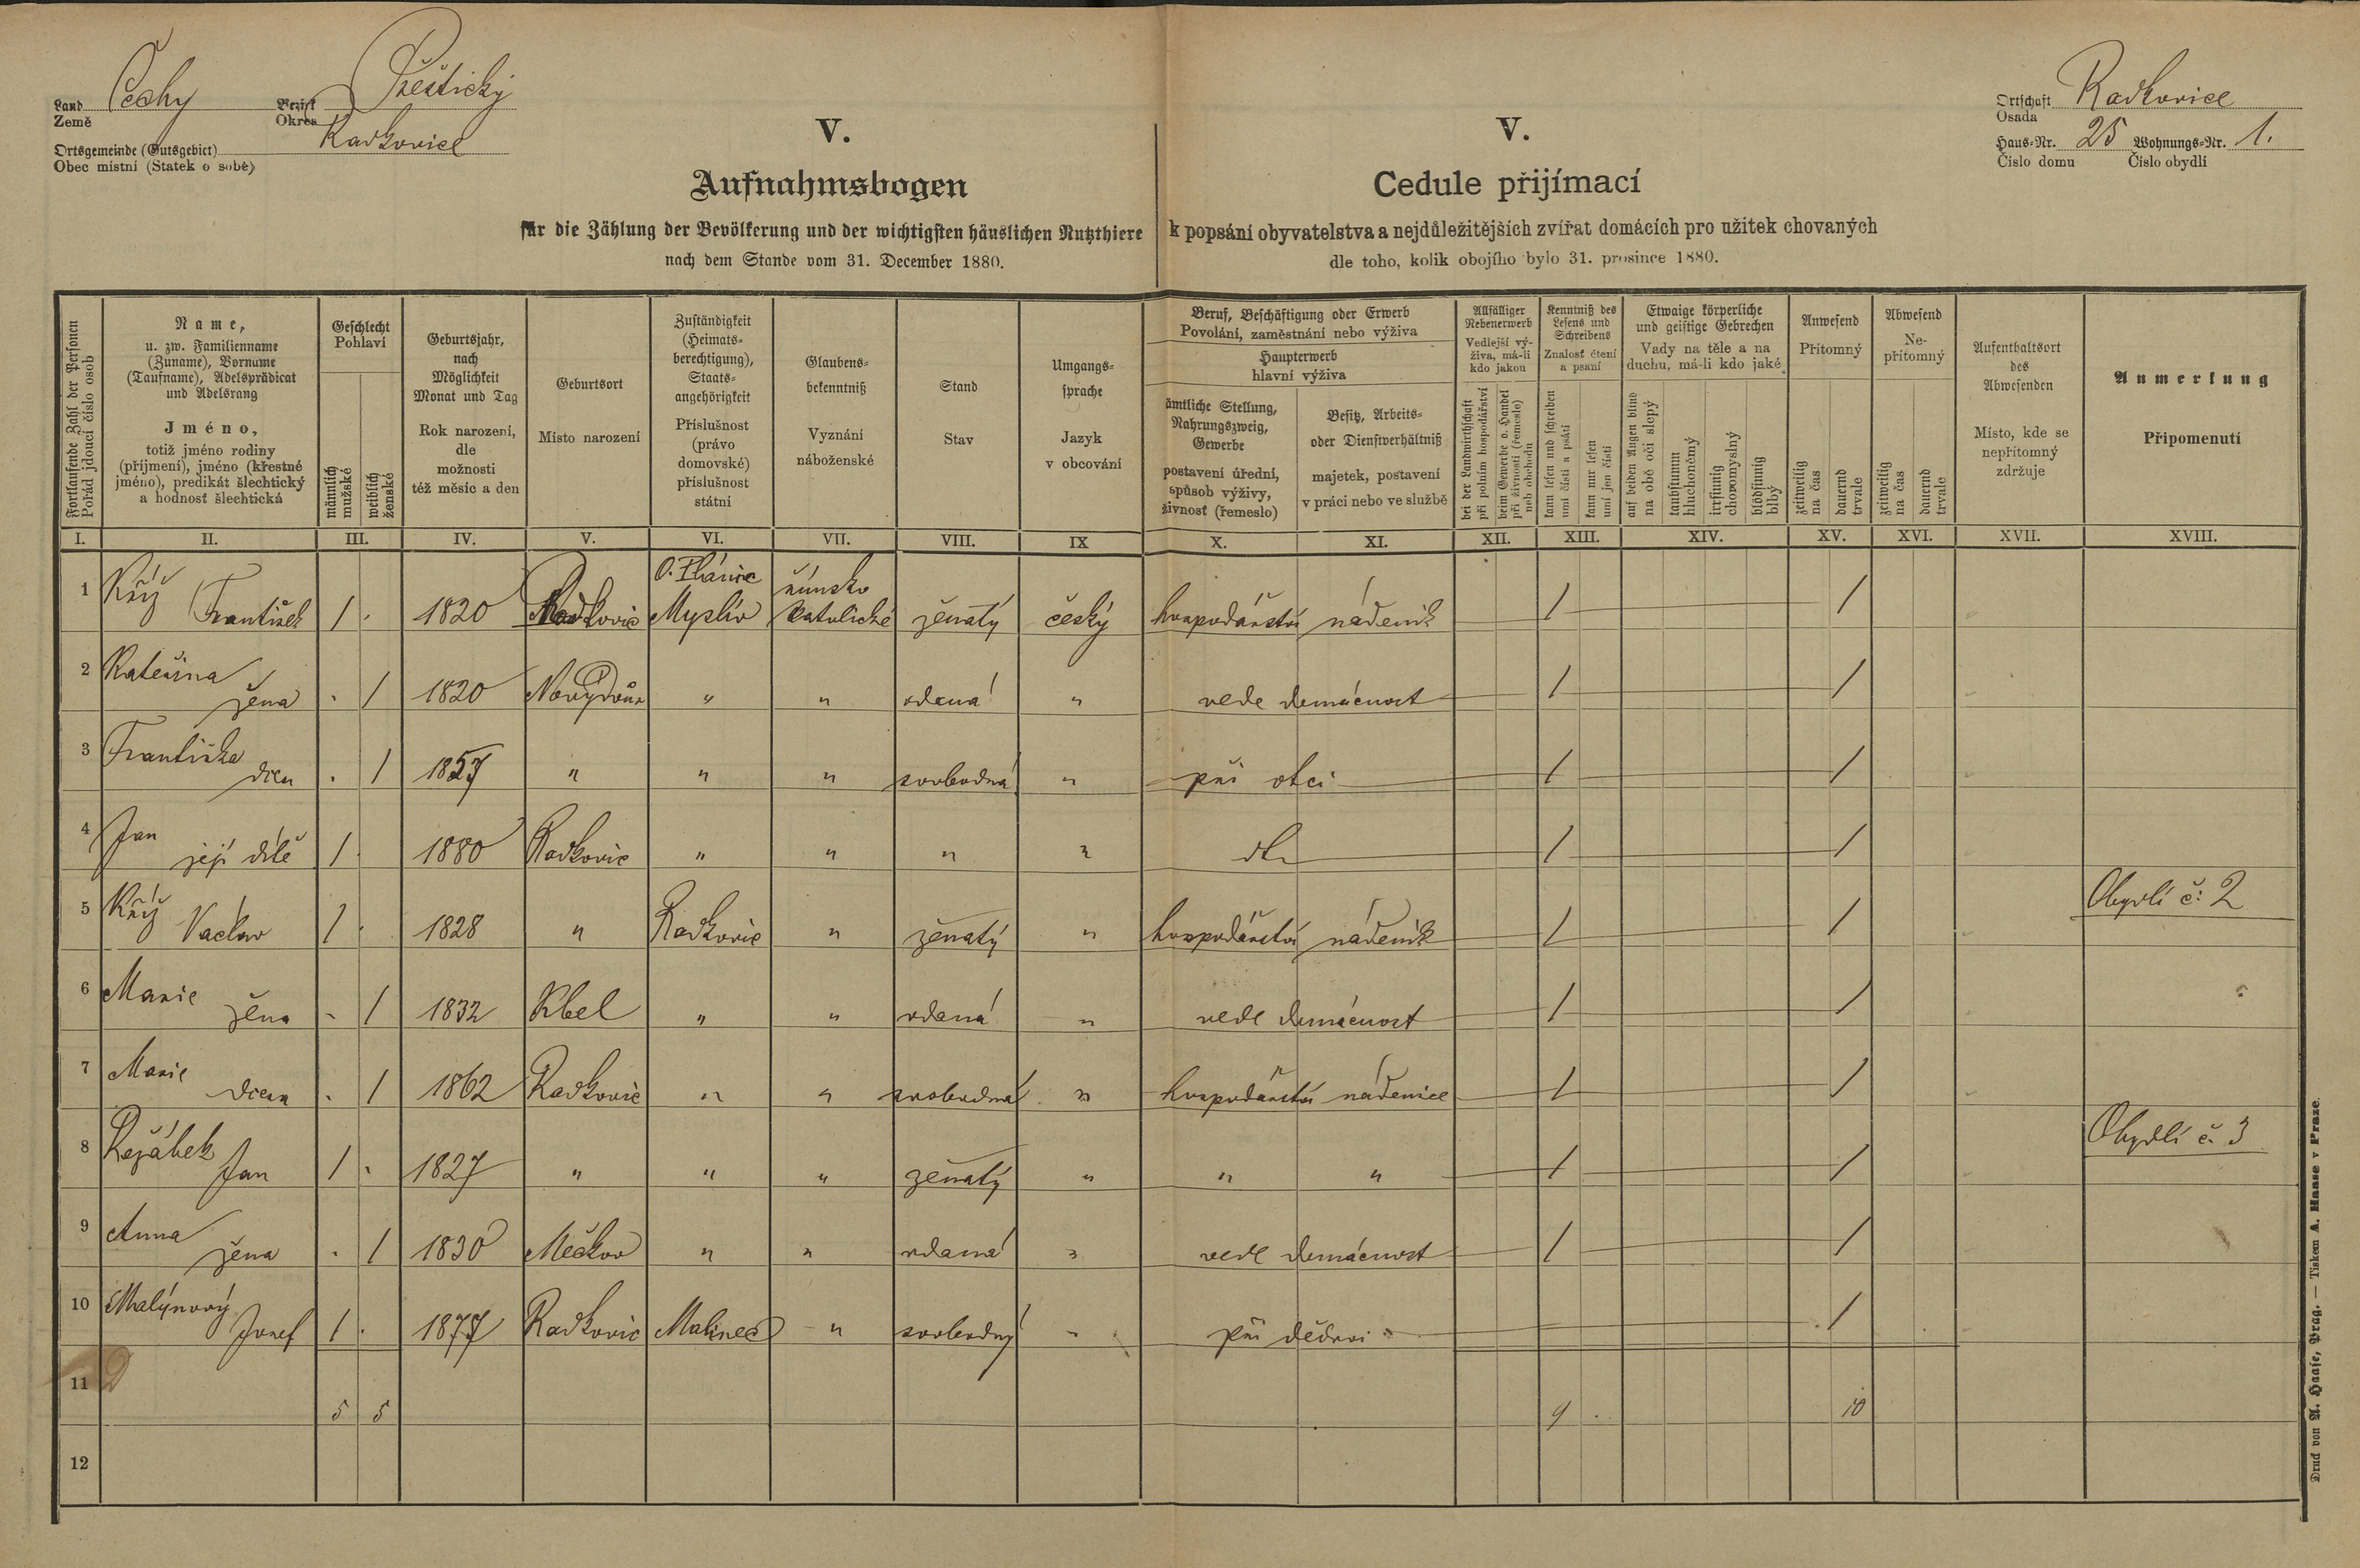 Land Čechy Bezirk Přeštický
Země Okres
Ortsgemeinde (Gutsgebiet) Radkovice
Obec místní (Statek o sobě)
V.
Aufnahmsbogen
für die Zählung der Bevölkerung und der wichtigsten häuslichen Nutzthiere
nach dem Stande vom 31. December 1880.
V.
Cedule přijímací
k popsání obyvatelstva a nejdůležitějších zvířat domácích pro užitek chovaných
dle toho, kolik obojího bylo 31. prosince 1880.
Ortschaft Radkovice
Osada
Haus-Nr. 25 Wohnungs-Nr. 1.
Číslo domu Číslo obydlí
Fortlaufende Zahl der Personen
Pořád jdoucí číslo osob
Name,
u. zw. Familienname
(Zuname), Vorname
(Taufname), Adelsprädicat
und Adelsrang
Jméno,
totiž jméno rodiny
(příjmení), jméno (křestné
jméno), predikát šlechtický
a hodnosť šlechtická
Geschlecht
Pohlaví
männlich
mužské
weiblich
ženské
Geburtsjahr,
nach
Möglichkeit
Monat und Tag
Rok narození,
dle
možnosti
též měsíc a den
Geburtsort
Místo narození
Zuständigkeit
(Heimats-
berechtigung),
Staats-
angehörigkeit
Příslušnost
(právo
domovské)
příslušnost
státní
Glaubens-
bekenntniß
Vyznání
náboženské
Stand
Stav
Umgangs-
sprache
Jazyk
v obcování
Beruf, Beschäftigung oder Erwerb
Povolání, zaměstnání nebo výživa
Haupterwerb
hlavní výživa
ämtliche Stellung,
Nahrungszweig,
Gewerbe
postavení úřední,
spůsob výživy,
živnosť (řemeslo)
Besitz, Arbeits-
oder Dienstverhältniß
majetek, postavení
v práci nebo ve službě
Allfälliger
Nebenerwerb
Vedlejší vý-
živa, má-li
kdo jakou
bei der Landwirthschaft
při polním hospodářství
beim Gewerbe o. Handel
při živnosti (řemesle)
neb obchodu
Kenntniß des
Lesens und
Schreibens
Znalosť čtení
a psaní
kann lesen und schreiben
umí čísti a psáti
kann nur lesen
umí jen čísti
Etwaige körperliche
und geistige Gebrechen
Vady na těle a na
duchu, má-li kdo jaké
auf beiden Augen blind
na obě oči slepý
taubstumm
hluchoněmý
irrsinnig
choromyslný
blödsinnig
blbý
Anwesend
Přítomný
zeitweilig
na čas
dauernd
trvale
Abwesend
Ne-
přítomný
zeitweilig
na čas
dauernd
trvale
Aufenthaltsort
des
Abwesenden
Místo, kde se
nepřítomný
zdržuje
Anmerkung
Připomenutí
I. II. III. IV. V. VI. VII. VIII. IX X. XI. XII. XIII. XIV. XV. XVI. XVII. XVIII.
O. Plánice římsko
1 Kříž František 1 . 1820 Radkovic Myslív katolické ženatý český hospodářství nádeník 1 1
2 Kateřina žena . 1 1820 Nový Dvůr " " vdaná " vede domácnost 1 1
3 Františka dcera . 1 1857 " " " svobodná " při otci 1 1
4 Jan její dítě 1 . 1880 Radkovic " " " " dto 1 1
5 Kříž Václav 1 . 1828 " Radkovic " ženatý " hospodářství nádeník 1 1 Obydlí č: 2
6 Marie žena . 1 1832 Kbel " " vdaná " vede domácnost 1 1
7 Marie dcera . 1 1862 Radkovic " " svobodná " hospodářství nádenice 1 1
8 Režábek Jan 1 . 1827 " " " ženatý " " " 1 1 Obydlí č. 3
9 Anna žena . 1 1830 Mečkov " " vdaná " vede domácnost 1 1
10 Malýnový Josef 1 . 1877 Radkovic Malinec " svobodný " při dědovi 1
11 5 5 9 . 10
12
Druck von A. Haase, Prag. — Tiskem A. Haase v Praze.